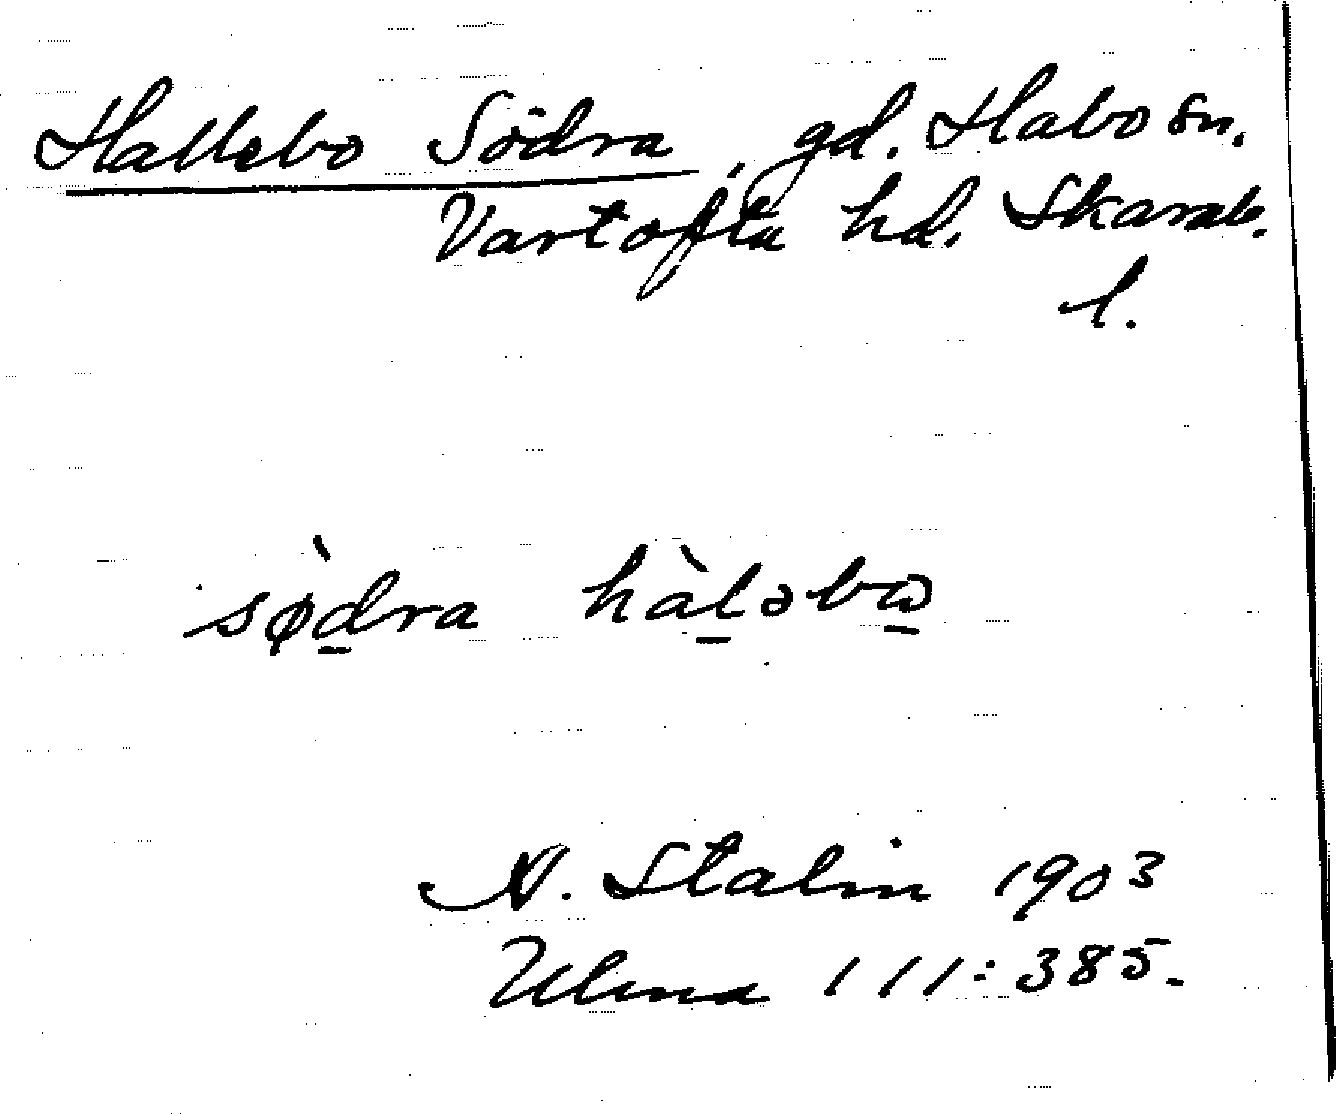 Hallebo Södra, gd. Habo sn.
Vartofta hd. Skarab.
l.
sø̀d̲ra hàl̲əbω̲
N. Stalin 1903
Ulma 111:385.